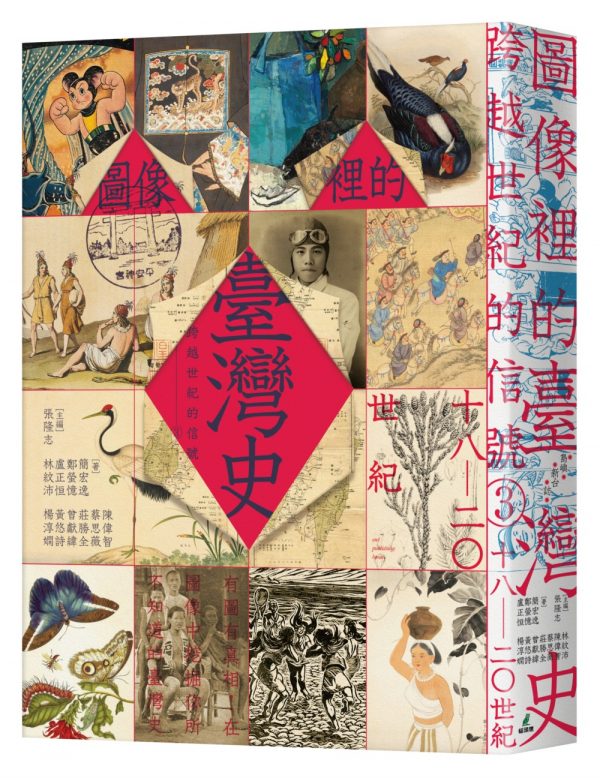 圖像
裡的
臺灣史
跨越世紀的信號
十八—二〇
世紀
[主編]
張隆志
[著]
簡宏逸
鄭螢憶
盧正恒
林紋沛
陳偉智
蔡思薇
莊勝全
曾獻緯
黃悠詩
楊淳嫻
有圖有真相
在
圖像中
你所
不知道的臺灣史
圖像裡的臺灣史
跨越世紀的信號③十八—二〇世紀
島嶼
新台
[主編]
張隆志
[著]
簡宏逸
鄭螢憶
盧正恒
林紋沛
陳偉智
蔡思薇
莊勝全
曾獻緯
黃悠詩
楊淳嫻
貓頭鷹